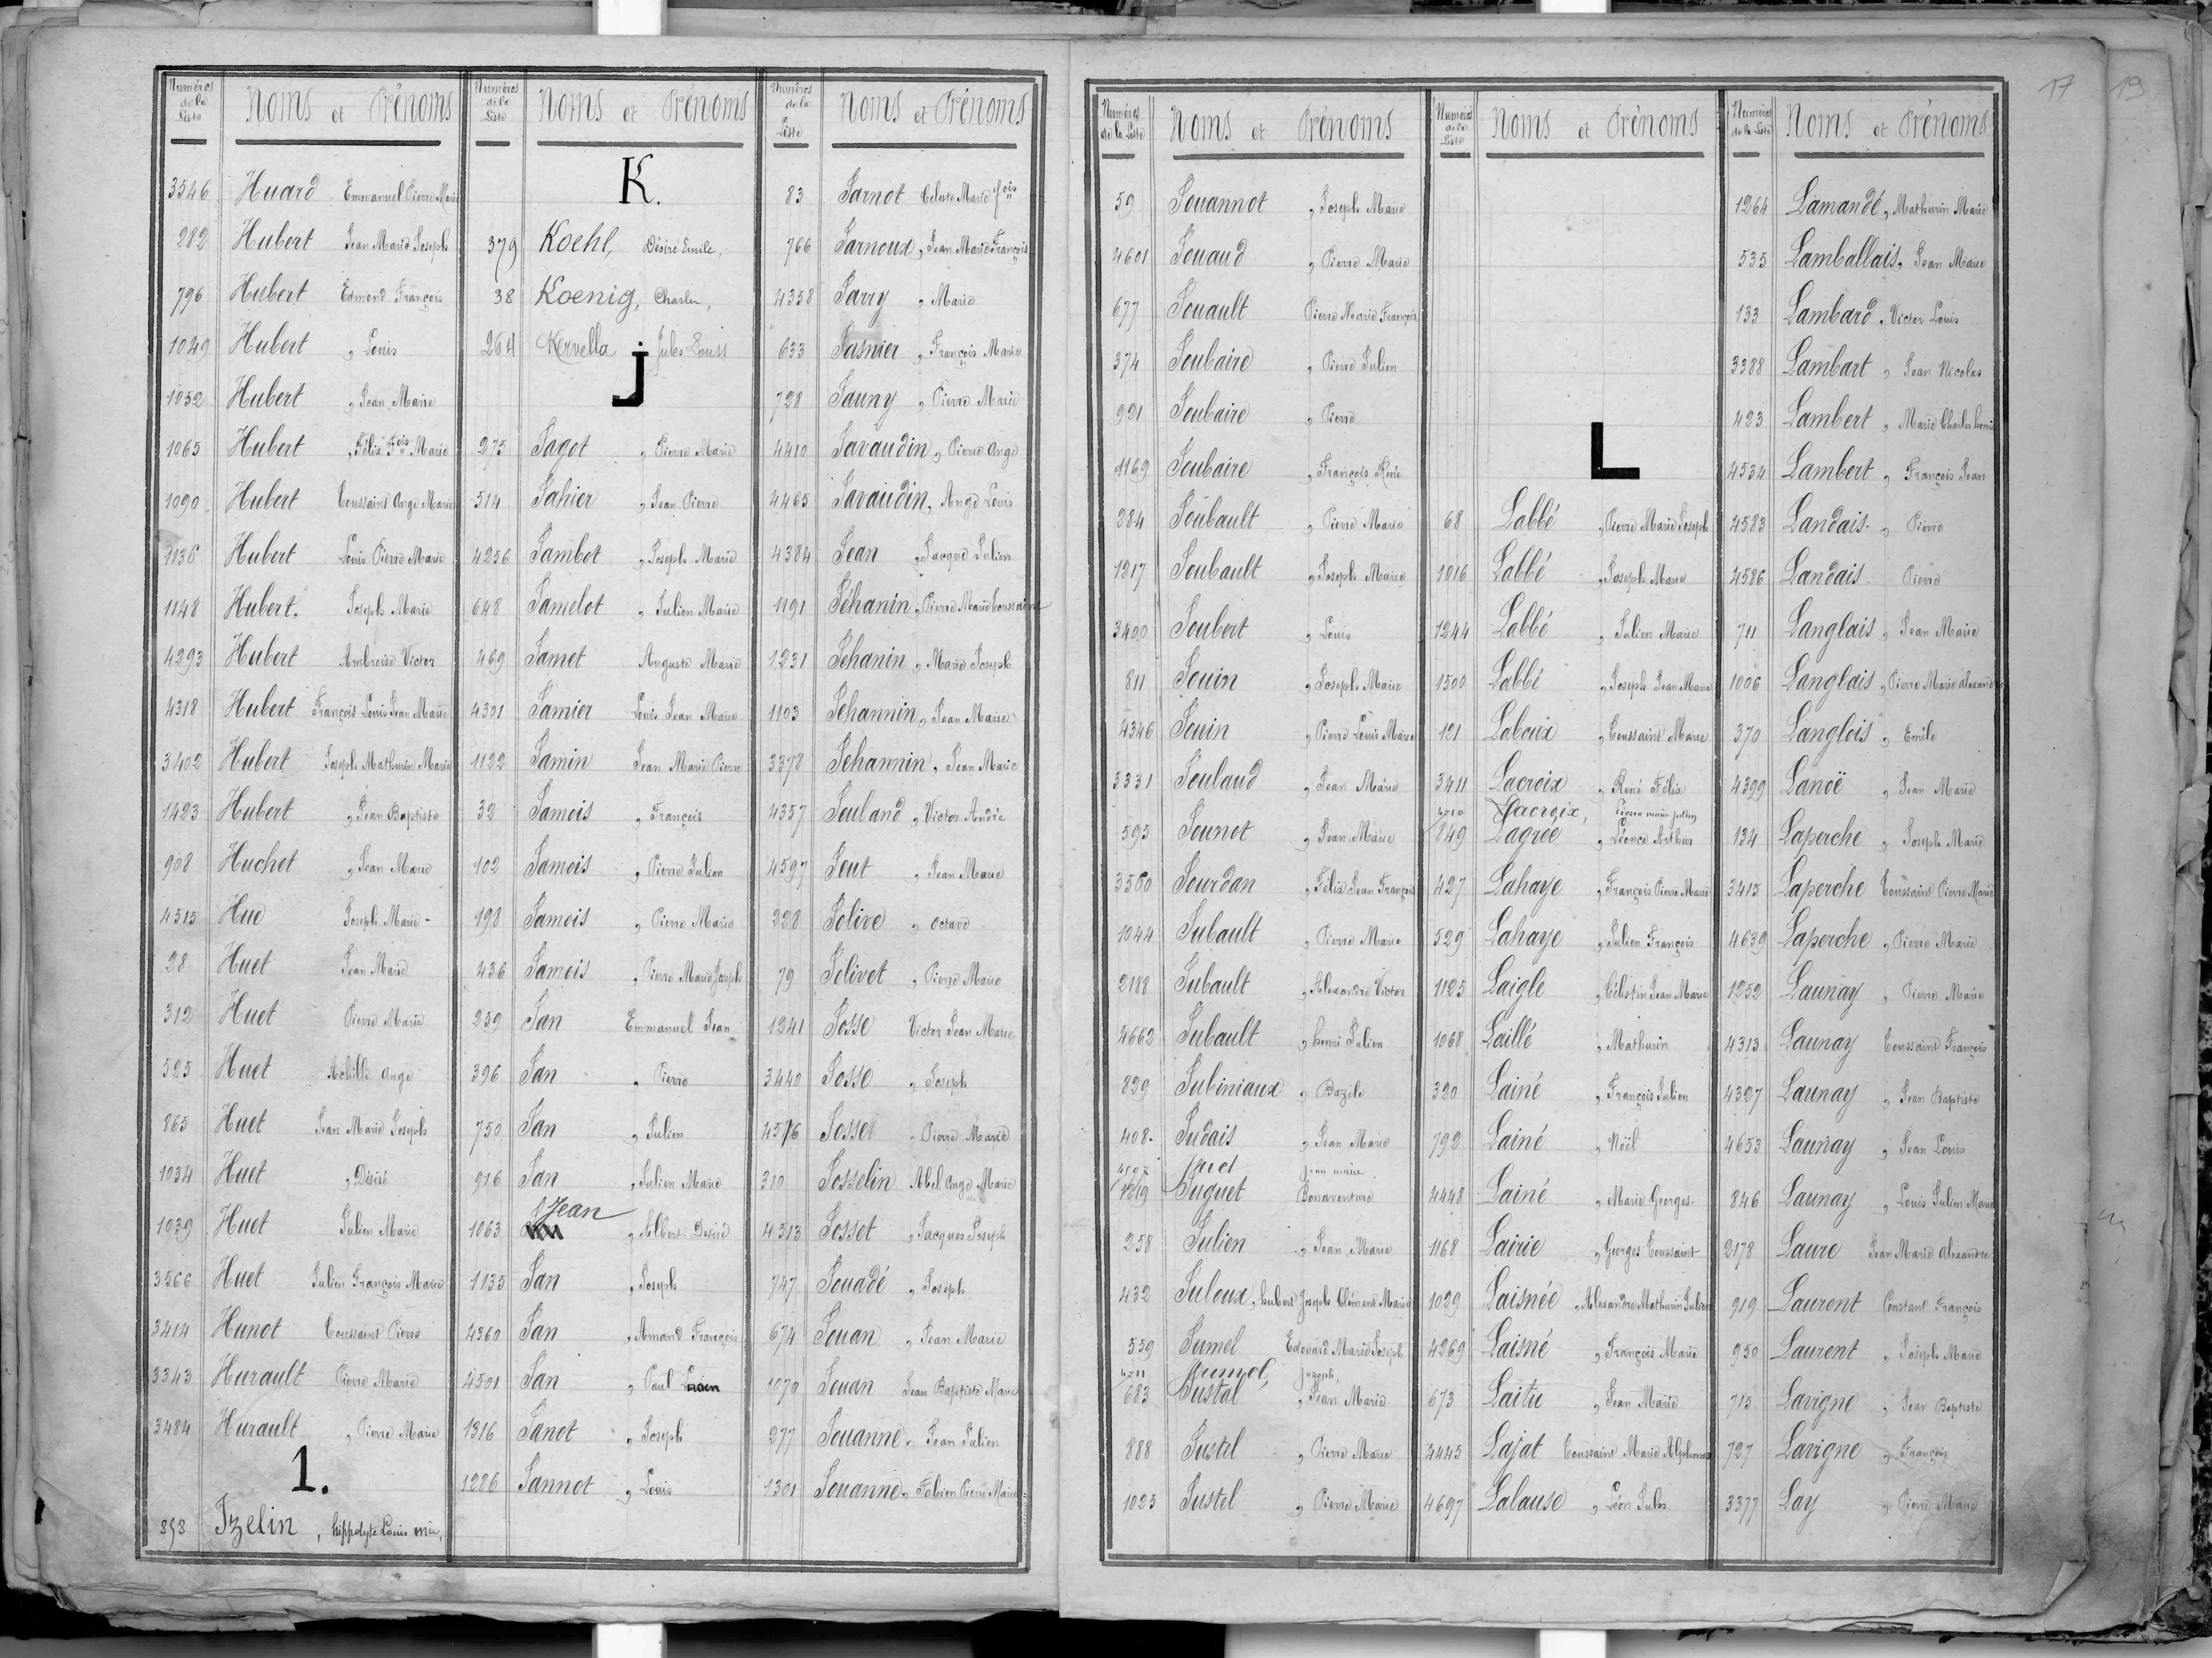 Numéros de la Liste Noms et Prénoms
3546 Huard Emmanuel Pierre Marie
282 Hubert Jean Marie Joseph
796 Hubert Edmond François
1029 Hubert, Louis
1032 Hubert, Jean Marie
1065 Hubert, Félix Fois Marie
1090 Hubert Toussaint Ange Marie
1136 Hubert Louis Pierre Marie
1148 Hubert. Joseph Marie
4293 Hubert Ambroise Victor
4318 Hubert François Louis Jean Marie
3402 Hubert Joseph Mathurin Marie
1423 Hubert, Jean Baptiste
908 Huchet, Jean Marie
4515 Hue Joseph Marie -
28 Huet Jean Marie
312 Huet Pierre Marie
525 Huet Achille Ange
865 Huet Jean Marie Joseph
1034 Huet, Désiré
1039 Huet Julien Marie
3566 Huet Julien François Marie
3414 Hunot Toussaint Pierre
3343 Hurault Pierre Marie
3484 Hurault, Pierre Marie
I.
858 Izelin, hippolyte Louis mie,
Numéros de la Liste Noms et Prénoms
K.
379 Koehl, Désiré Emile,
38 Koenig, Charles,
264 Kervella Jules Louis
J
275 Jagot, Pierre Marie
514 Jahier, Jean Pierre
4256 Jambot, Joseph Marie
648 Jamelot, Julien Marie
469 Jamet Auguste Marie
4301 Jamier Louis Jean Marie
1122 Jamin Jean Marie Pierre
32 Jamois, François
102 Jamois, Pierre Julien
198 Jamois, Pierre Marie
436 Jamois, Pierre Marie Joseph
259 Jan Emmanuel Jean
396 Jan, Pierre
750 Jan, Julien
916 Jan, Julien Marie
1063 Jean, Albert Désiré
1135 Jan, Joseph
4360 Jan, Armand François
4501 Jan, Paul
1316 Janot, Joseph
1286 Jannot, Louis
Numéros de la Liste Noms et Prénoms
83 Jarnot Celeste Marie fois
766 Jarnoux, Jean Marie François
4358 Jarry, Marie
633 Jasnier, François Marie
728 Jauny, Pierre Marie
4410 Javaudin, Pierre Ange
4465 Javaudin, Ange Louis
4384 Jean, Jacques Julien
1191 Jéhanin, Pierre Marie Toussaint
1231 Jehanin, Marie Joseph
1103 Jehannin, Jean Marie
3378 Jehannin, Jean Marie
4357 Jeuland, Victor André
4597 Jeut, Jean Marie
228 Jolive, Octave
79 Jolivet, Pierre Marie
1241 Josse Victor Jean Marie
3440 Josse, Joseph
4576 Josset, Pierre Marie
310 Josselin Abel Ange Marie
4513 Josset, Jacques Joseph
747 Jouadé, Joseph
674 Jouan, Jean Marie
1070 Jouan Jean Baptiste Marie
277 Jouanne, Jean Julien
1301 Jouanne, Fabien Pierre Marie
17 19
Numéros de la Liste Noms et Prénoms
59 Jouannot, Joseph Marie
4601 Jouaud, Pierre Marie
677 Jouault Pierre Marie François
374 Joubaire, Pierre Julien
921 Joubaire, Pierre
1169 Joubaire, François René
284 Joubault, Pierre Marie
1217 Joubault, Joseph Marie
3400 Joubert, Louis
811 Jouin, Joseph Marie
4346 Jouin, Pierre Louis Marie
3331 Joulaud, Jean Marie
595 Jounot, Jean Marie
3560 Jourdan, Félix Jean François
1044 Jubault, Pierre Marie
2188 Jubault, Alexandre Victor
4662 Jubault, henri Julien
829 Jubiniaux, Bazile
408. Judais, Jean Marie
Juet jean marie
1219 Juguet Bonaventure
258 Julien, Jean Marie
432 Juloux, hubert Joseph Clément Marie
559 Jumel Edouard Marie Joseph
4711 Jumel, Joseph,
683 Justal, Jean Marie
888 Justel, Pierre Marie
1025 Justel, Pierre Marie
Numéros de la Liste Noms et Prénoms
L
68 Labbé, Pierre Marie Joseph
1016 Labbé, Joseph Marie
1244 Labbé, Julien Marie
1500 Labbé, Joseph Jean Marie
121 Laboux, Toussaint Marie
3411 Lacroix, René Félix
4710 Lacroix, Pierre marie julien
849 Lagrée, Léonce Arthur
427 Lahaye, François Pierre Marie
529 Lahaye, Julien François
1125 Laigle, Célestin Jean Marie
1068 Laillé, Mathurin
320 Lainé, François Julien
792 Lainé, Noël
4448 Lainé, Marie Georges.
1168 Lairie, Georges Toussaint
1029 Laisnée, Alexandre Mathurin Julien
4269 Laisné, François Marie
673 Laitu, Jean Marie
4445 Lajat Toussaint Marie Alphonse
4697 Lalause, Léon Jules
Numéros de la Liste Noms et Prénoms
1264 Lamandé, Mathurin Marie
535 Lamballais, Jean Marie
133 Lambard, Victor Louis
3388 Lambart, Jean Nicolas
423 Lambert, Marie Charles henri
4534 Lambert, François Jean
4583 Landais, Pierre
4586 Landais Pierre
711 Langlais, Jean Marie
1006 Langlais, Pierre Marie Alexandre
370 Langlois, Emile
4399 Lanoë, Jean Marie
134 Laperche, Joseph Marie
3415 Laperche Toussaint Pierre Marie
4639 Laperche, Pierre Marie
1252 Launay, Pierre Marie
4313 Launay Toussaint François
4327 Launay, Jean Baptiste
4653 Launay, Jean Louis
846 Launay, Louis Julien Marie
2178 Laure Jean Marie Alexandre
919 Laurent Constant François
950 Laurent, Joseph Marie
715 Lavigne, Jean Baptiste
727 Lavigne, François
3377 Lay, Pierre Marie